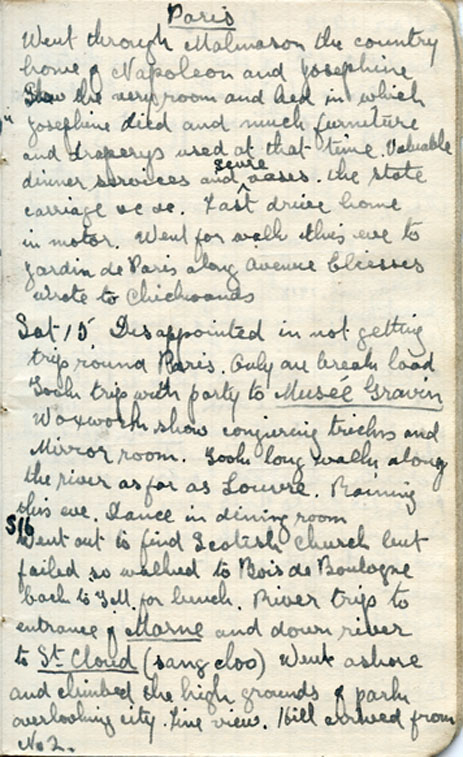 Paris
Went through Malmason the country
home of Napoleon and Josephine
Saw the very room and bed in which
Josephine died and much furniture
and draperys used at that time. Valuable
dinner services and sevre vases. the state
carriage &c &c. Fast drive home
in motor. Went for walk this eve to
Jardin de Paris along Avenue Elcesses
wrote to Chickwands
Sat 15 Disappointed in not getting
trip round Paris. Only one break load
Took trip with party to Museé Gravin
Waxwork show conjuring tricks and
Mirror room. Took long walk along
the river as far as Louvre. Raining
this eve. Dance in dining room
S16 Went out to find Scotish Church but
failed so walked to Bois de Boulogne
back to Y.M. for lunch. River trip to
entrance of Marne and down river
to St Cloud (sang cloo) Went ashore
and climbed the high grounds of park
overlooking city. Fine view. Hill arrived from
No 2.